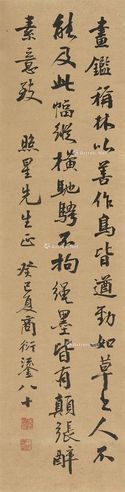 畫鑑稱林以善作鳥皆遒勁如草書人不
能及此幅縱橫馳騁不拘繩墨皆有顛張醉
素意致　照星先生正　癸巳夏商衍鎏八十